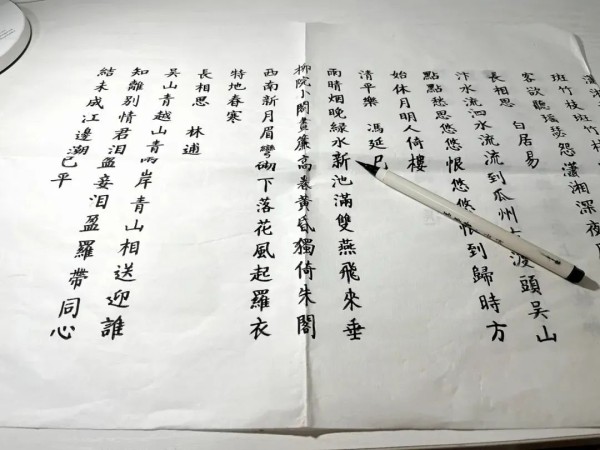 瀟湘
斑竹枝斑竹枝
客欲聽瑤瑟怨瀟湘深夜
長相思 白居易
汴水流泗水流流到瓜州渡頭吳山
點點愁思悠悠恨悠悠恨到歸時方
始休月明人倚樓
清平樂 馮延巳
雨晴烟晚綠水新池滿雙燕飛來垂
柳院小閣畫簾高卷黃昏獨倚朱閣
西南新月眉彎砌下落花風起羅衣
特地春寒
長相思 林逋
吳山青越山青兩岸青山相送迎誰
知離別情君泪盈妾泪盈羅帶同心
結未成江邊潮已平